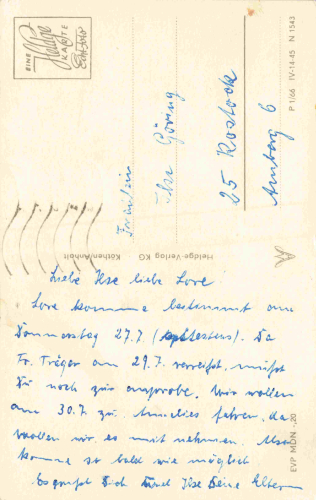 EINE
Heldge
KARTE
Echt Foto
Fräulein
Ilse Göring
25 Rostock
Amberg 6
P 1/66 IV-14-45 N 1543
Heldge-Verlag KG Köthen/Anhalt
EVP MDN -,20
Liebe Ilse liebe Lore!
Lore komme bestimmt am
Donnerstag 27.7. (spätestens). Da
Fr. Träger am 29.7. verreist, mußt
Du noch zur anprobe. Wir wollen
am 30.7. zu Annelies fahren, da
wollen wir es mit nehmen. Also
komme so bald wie möglich
Es grüßt Dich und Ilse Deine Eltern